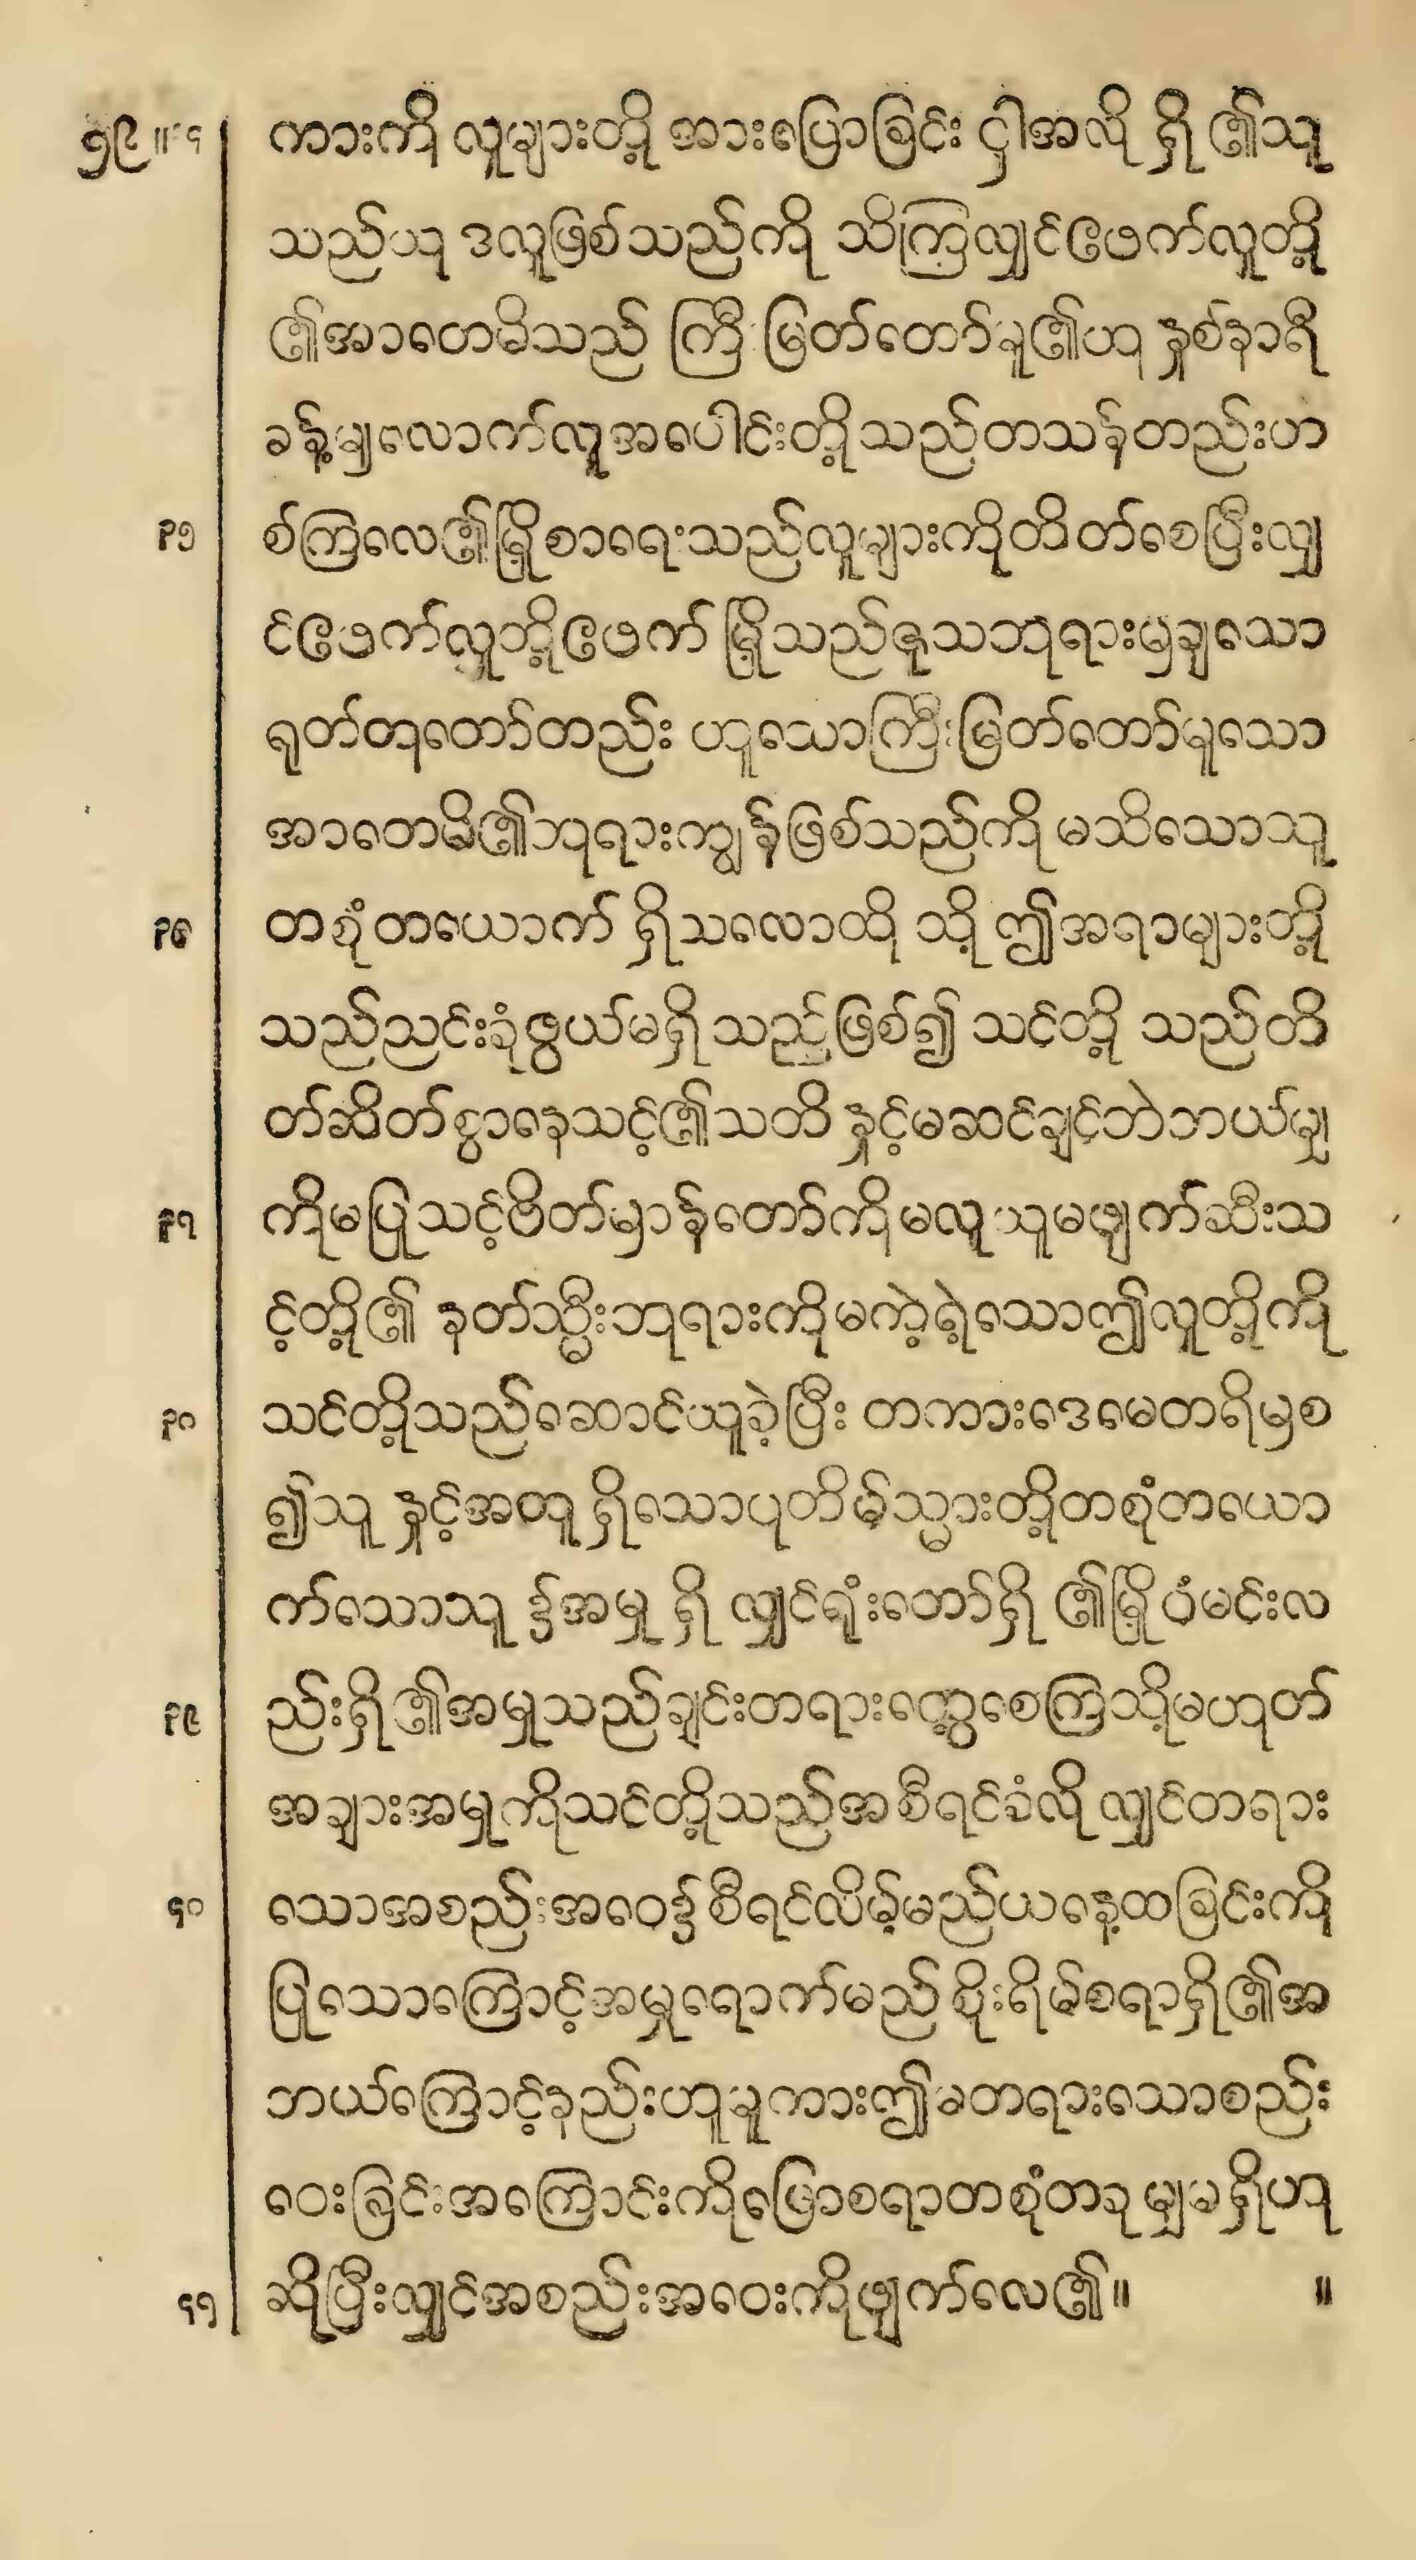 ၅၉ ။
ကားကို လူများတို့ အားပြောခြင်း ငှါအလို ရှိ ၏သူ
သည်ယုဒလူဖြစ်သည်ကို သိကြလျှင်ဧဖက်လူတို့
၏အာတေမိသည် ကြီးမြတ်တော်မူ၏ဟု နှစ်နာရီ
ခန့်မျှလောက်လူအပေါင်းတို့သည်တသန်တည်းဟ
၃၅ စ်ကြလေ၏မြို့စာရေးသည်လူများကိုတိတ်စေပြီးလျှ
င်ဧဖက်လူတို့ဧဖက်မြို့သည်ဇုသဘုရားမှချသော
ရုတ်တုတော်တည်း ဟူသောကြီးမြတ်တော်မူသော
အာတေမိ၏ဘုရားကျွန်ဖြစ်သည်ကို မသိသောသူ
၃၆ တစုံတယောက် ရှိသလောထို သို့ ဤအရာများတို့
သည်ညင်းခုံဖွယ်မရှိသည်ဖြစ်၍ သင်တို့ သည်တိ
တ်ဆိတ်စွာနေသင့်၏သတိ နှင့်မဆင်ချင်ဘဲဘယ်မျှ
၃၇ ကိုမပြုသင့်ဗိတ်မှာန်တော်ကိုမလူယူမဖျက်ဆီးသ
င့်တို့၏ နတ်သ္မီးဘုရားကိုမကဲ့ရဲ့သောဤလူတို့ကို
၃၈ သင်တို့သည်ဆောင်ယူခဲ့ပြီး တကားဒေမေတရိမှစ
၍သူ နှင့်အတူ ရှိသောပုတိမ်သ္မားတို့တစုံတယော
က်သောသူ ၌အမှု ရှိ လျှင်ရုံးတော်ရှိ ၏မြို့ဝံမင်းလ
၃၉ ည်းရှိ၏အမှုသည်ချင်းတရားတွေ့စေကြသို့မဟုတ်
အချားအမှုကိုသင်တို့သည်အစီရင်ခံလို လျှင်တရား
၄၀ သောအစည်းအဝေး၌စီရင်လိမ့်မည်ယနေ့ထခြင်းကို
ပြုသောကြောင့်အမှုရောက်မည်စိုးရိမ်စရာရှိ၏အ
ဘယ်ကြောင့်နည်းဟူမူကားဤမတရားသောစည်း
ဝေးခြင်းအကြောင်းကိုဖြေစရာတစုံတခုမျှမရှိဟု
၄၁ ဆိုပြီးလျှင်အစည်းအဝေးကိုဖျက်လေ၏။ ။